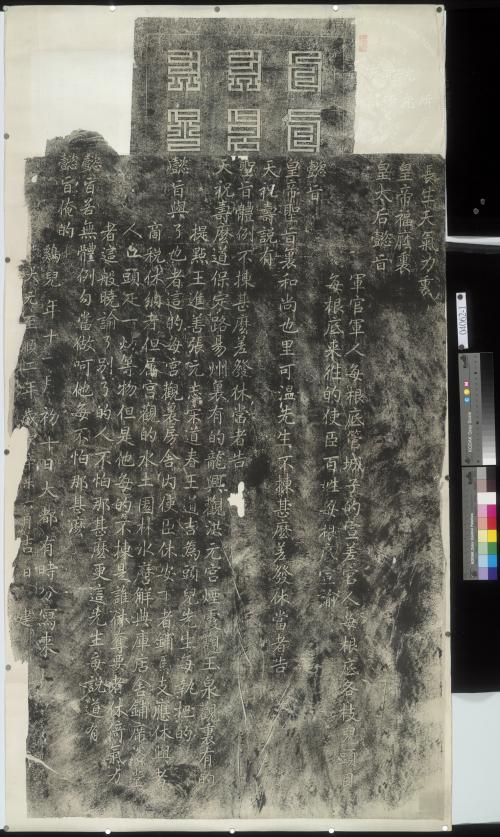 長生天氣力裏
皇帝福廕裏
皇太后懿旨
軍官軍人每根底管城子的宣差官人每根底各枝兒頭目
每根底來往的使臣百姓每根底宣諭
懿旨
皇帝聖旨裏和尚也里可溫先生不揀甚麼差發休當者告
天祝壽說有
聖旨體例不揀甚麼差發休當者告
天祝壽麼道保定路易州裏有的龍興觀洪元宮煙霞觀玉泉觀裏有的
提點王進善張元志宋道春王道吉為頭兒先生每執把的
懿旨與了也者這的每宮觀裏房舍內使臣休安下者鋪馬支應休與者
商稅休納者但屬宮觀的水土園林水磨解典庫店舍鋪席浴堂
人口頭疋一切等物但是他每的不揀是誰休奪要者休倚氣力
者這般曉諭了別了的人不怕那甚麼更這先生每說道有
懿旨若無體例勾當做呵他每不怕那甚麼
懿旨俺的
雞兒年十二月初十日大都有時分寫來
大元至二年歲吉日建
04062-1